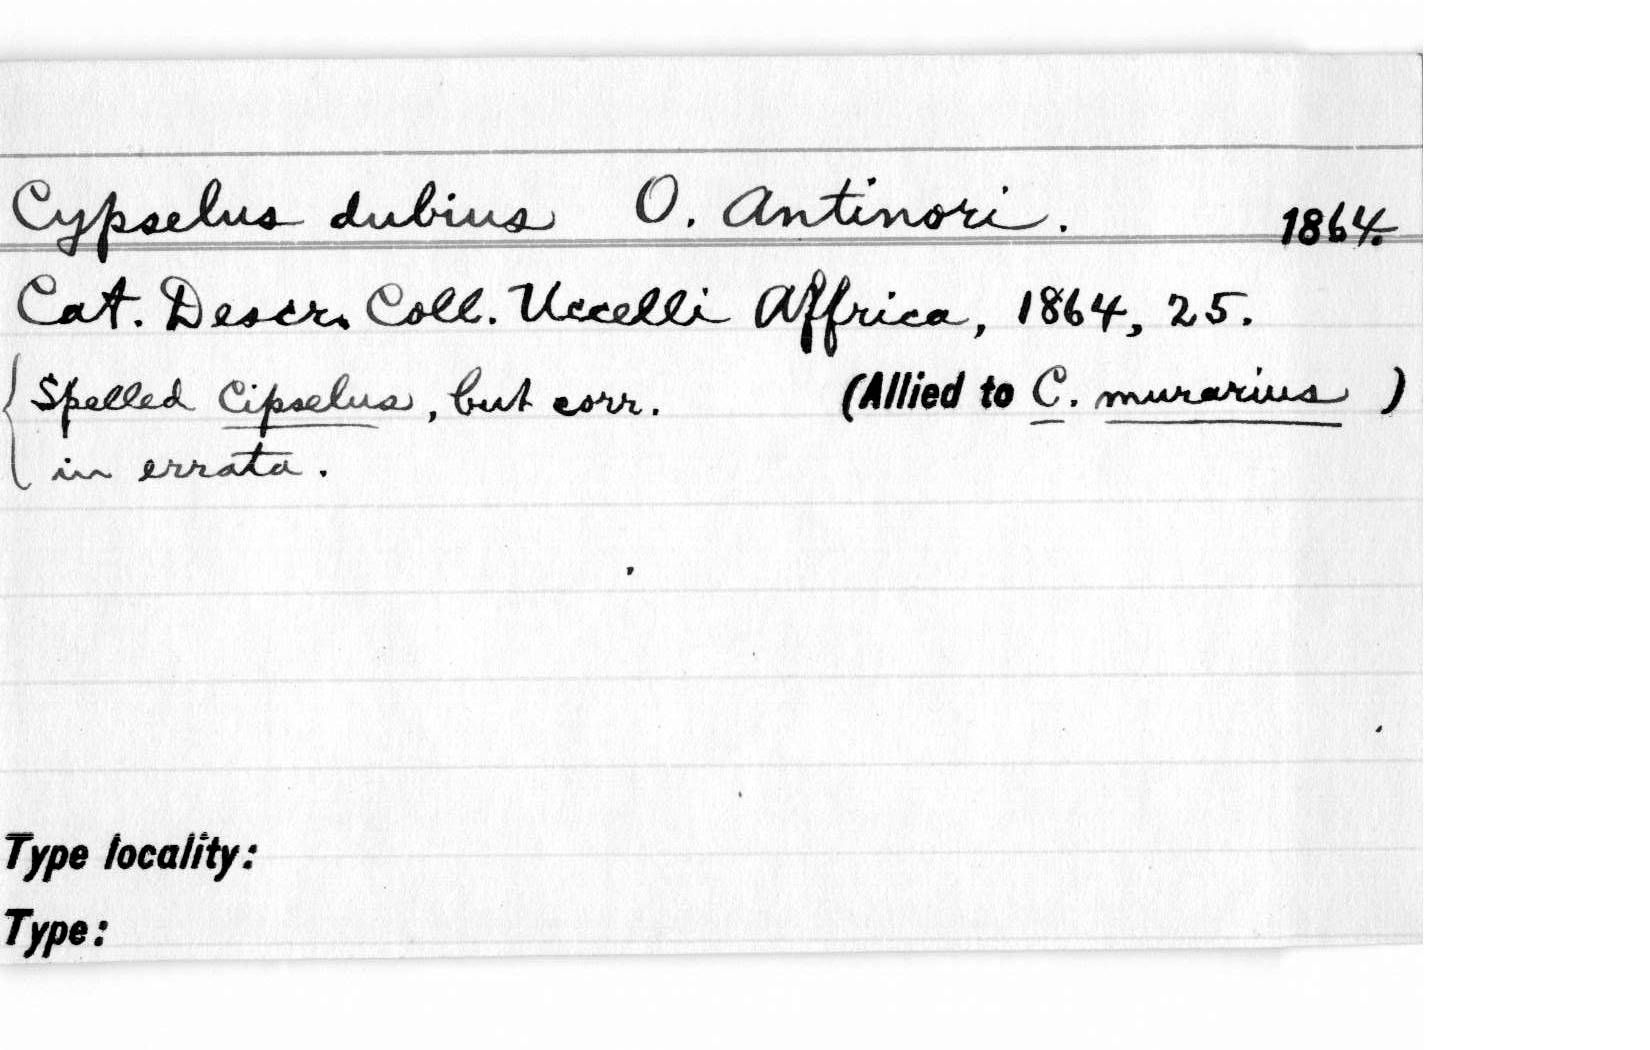 Cypselus dubius O. Antinori. 1864.
Cat. Descr. Coll. Uccelli Affrica, 1864, 25.
{ Spelled Cipselus, but corr. (Allied to C. murarius )
in errata.
Type locality:
Type: